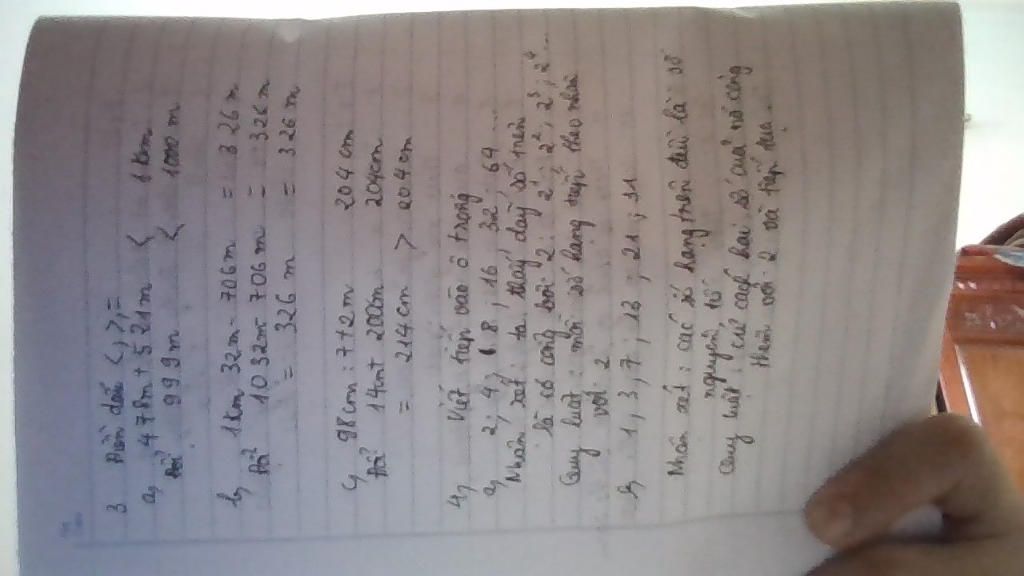 3 Điền dấu <, >, =
a, 478m + 521m < 1km
Đổi 999m < 1000m
b, 1km 32m - 706m = 326m
Đổi 1032m - 706m = 326m
= 326m = 326m
c, 98cm : 7 + 2m 204cm
Đổi 14cm + 200cm 204cm
= 214cm > 204cm
4, Viết tiếp vào ô trống
a, 2; 4; 8; 16; 32; 64 ...
Nhận xét: ta thấy dãy số trên
là số cộng bởi 2 2¹; 2²; 2³; 2⁴...
Quy luật: mỗi số hạng tiếp theo nhân
với 2
b, 1, 3, 7; 13; 21; 31
Nhân xét: các số hạng trên đều là số
nguyên tố
Quy luật: cứ cach hai số của nó cộng
thêm với 2 và tiếp tục...